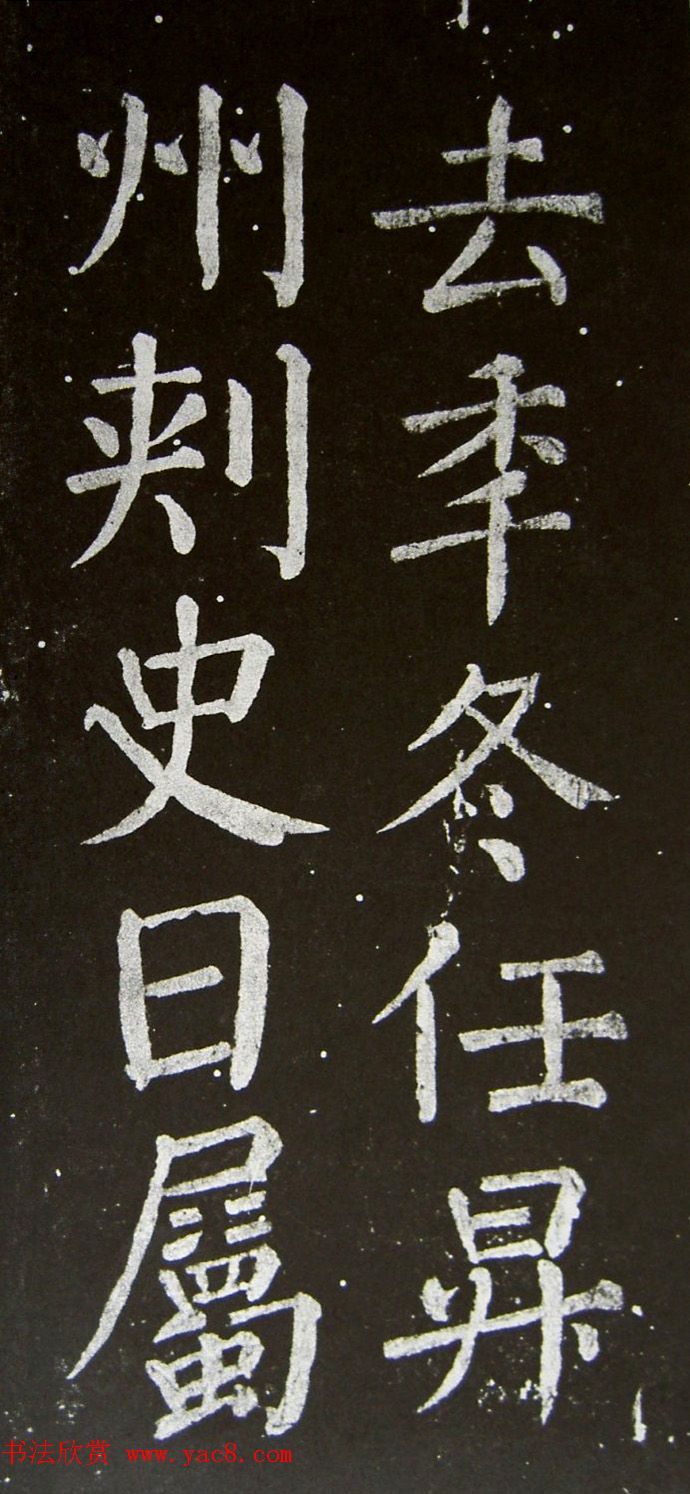 去秊冬任昇
州刺史日屬
书法欣赏 www.yac8.com